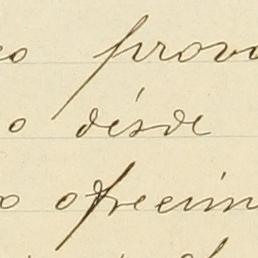 o provo
o désde
o ofrecim